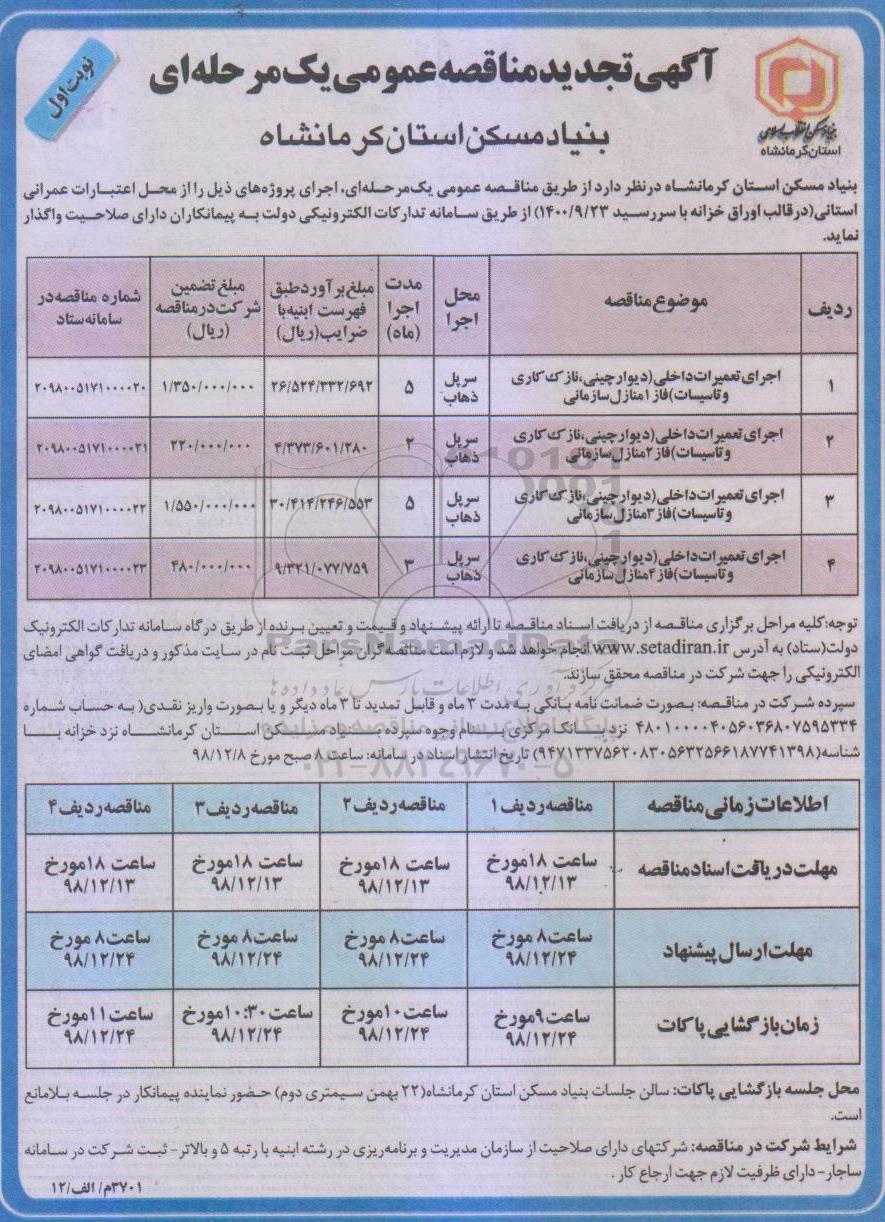 نوبت اول
آگهی تجدید مناقصه عمومی یک مرحله‌ای
بنیاد مسکن استان کرمانشاه
بنیاد مسکن انقلاب اسلامی
استان کرمانشاه
بنیاد مسکن استان کرمانشاه درنظر دارد از طریق مناقصه عمومی یک‌مرحله‌ای، اجرای پروژه‌های ذیل را از محل اعتبارات عمرانی
استانی(درقالب اوراق خزانه با سررسید ۱۴۰۰/۹/۲۳) از طریق سامانه تدارکات الکترونیکی دولت به پیمانکاران دارای صلاحیت واگذار
نماید.
ردیف موضوع مناقصه محل اجرا مدت اجرا (ماه) مبلغ برآورد طبق فهرست ابنیه با ضرایب(ریال) مبلغ تضمین شرکت در مناقصه (ریال) شماره مناقصه در سامانه ستاد
۱ اجرای تعمیرات داخلی(دیوارچینی،نازک کاری و تاسیسات)فاز ۱ منازل سازمانی سرپل ذهاب ۵ ۲۶/۵۲۴/۳۳۲/۶۹۲ ۱/۳۵۰/۰۰۰/۰۰۰ ۲۰۹۸۰۰۵۱۷۱۰۰۰۰۲۰
۲ اجرای تعمیرات داخلی(دیوارچینی،نازک کاری و تاسیسات)فاز ۲ منازل سازمانی سرپل ذهاب ۲ ۴/۳۷۳/۶۰۱/۲۸۰ ۲۲۰/۰۰۰/۰۰۰ ۲۰۹۸۰۰۵۱۷۱۰۰۰۰۲۱
۳ اجرای تعمیرات داخلی(دیوارچینی،نازک کاری و تاسیسات)فاز ۳ منازل سازمانی سرپل ذهاب ۵ ۳۰/۴۱۴/۲۴۶/۵۵۳ ۱/۵۵۰/۰۰۰/۰۰۰ ۲۰۹۸۰۰۵۱۷۱۰۰۰۰۲۲
۴ اجرای تعمیرات داخلی(دیوارچینی،نازک کاری و تاسیسات)فاز ۴ منازل سازمانی سرپل ذهاب ۳ ۹/۳۲۱/۰۷۷/۷۵۹ ۴۸۰/۰۰۰/۰۰۰ ۲۰۹۸۰۰۵۱۷۱۰۰۰۰۲۳
توجه:کلیه مراحل برگزاری مناقصه از دریافت اسناد مناقصه تا ارائه پیشنهاد و قیمت و تعیین برنده از طریق درگاه سامانه تدارکات الکترونیک
دولت(ستاد) به آدرس www.setadiran.ir انجام خواهد شد و لازم است مناقصه‌گران مراحل ثبت نام در سایت مذکور و دریافت گواهی امضای
الکترونیکی را جهت شرکت در مناقصه محقق سازند.
سپرده شرکت در مناقصه: بصورت ضمانت نامه بانکی به مدت ۳ ماه و قابل تمدید تا ۳ ماه دیگر و یا بصورت واریز نقدی( به حساب شماره
۴۸۰۱۰۰۰۰۴۰۵۶۰۳۶۸۰۷۵۹۵۳۳۴ نزد بانک مرکزی بنام وجوه سپرده بنیاد مسکن استان کرمانشاه نزد خزانه با
شناسه(۹۴۷۱۳۳۷۵۶۲۰۸۳۰۵۶۳۲۵۶۶۱۸۷۷۴۱۳۹۸) تاریخ انتشار اسناد در سامانه: ساعت ۸ صبح مورخ ۹۸/۱۲/۸
ParsNamadData
پایگاه اطلاع رسانی مناقصه و مزایده
۰۲۱-۸۸۳۴۹۶۷۰-۵
اطلاعات زمانی مناقصه مناقصه ردیف ۱ مناقصه ردیف ۲ مناقصه ردیف ۳ مناقصه ردیف ۴
مهلت دریافت اسناد مناقصه ساعت ۱۸مورخ ۹۸/۱۲/۱۳ ساعت ۱۸مورخ ۹۸/۱۲/۱۳ ساعت ۱۸مورخ ۹۸/۱۲/۱۳ ساعت ۱۸مورخ ۹۸/۱۲/۱۳
مهلت ارسال پیشنهاد ساعت۸ مورخ ۹۸/۱۲/۲۴ ساعت۸ مورخ ۹۸/۱۲/۲۴ ساعت۸ مورخ ۹۸/۱۲/۲۴ ساعت۸ مورخ ۹۸/۱۲/۲۴
زمان بازگشایی پاکات ساعت۹مورخ ۹۸/۱۲/۲۴ ساعت۱۰مورخ ۹۸/۱۲/۲۴ ساعت۱۰:۳۰مورخ ۹۸/۱۲/۲۴ ساعت۱۱مورخ ۹۸/۱۲/۲۴
محل جلسه بازگشایی پاکات: سالن جلسات بنیاد مسکن استان کرمانشاه(۲۲ بهمن سیمتری دوم) حضور نماینده پیمانکار در جلسه بلامانع
است.
شرایط شرکت در مناقصه: شرکتهای دارای صلاحیت از سازمان مدیریت و برنامه‌ریزی در رشته ابنیه با رتبه ۵ و بالاتر- ثبت شرکت در سامانه
ساجار- دارای ظرفیت لازم جهت ارجاع کار.
۳۷۰۱م/ الف/۱۲